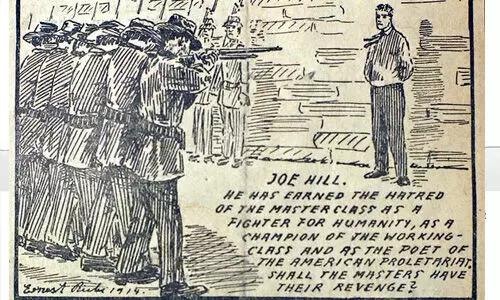 JOE HILL.
HE HAS EARNED THE HATRED
OF THE MASTERCLASS AS A
FIGHTER FOR HUMANITY, AS A
CHAMPION OF THE WORKING-
CLASS AND AS THE POET OF
THE AMERICAN PROLETARIAT.
SHALL THE MASTERS HAVE
THEIR REVENGE?
Ernest 1914.